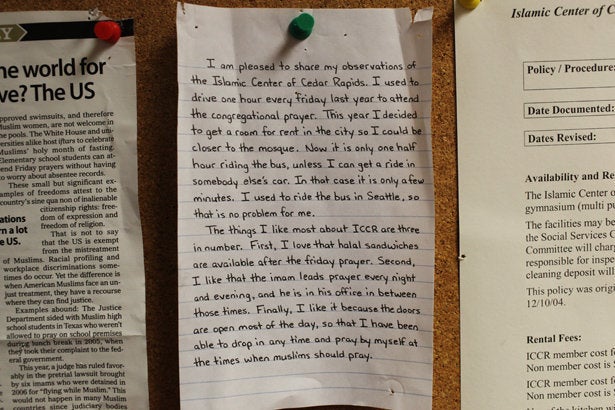 he world for
ve? The US
pproved swimsuits, and therefore
uslim women, are not welcome in
he pools. The White House and uni-
ersities alike host iftars to celebrate
Muslims' holy month of fasting.
Elementary school students can at-
end Friday prayers without having
o worry about absentee records.
These small but significant ex-
amples of freedoms attest to the
country's sine qua non of inalienable
citizenship rights: free-
dom of expression and
freedom of religion.
ations
n a lot
e US.
That is not to say
that the US is exempt
from the mistreatment
of Muslims. Racial profiling and
workplace discriminations some-
times do occur. Yet the difference is
when American Muslims face an un-
just treatment, they have a recourse
where they can find justice.
Examples abound: The Justice
Department sided with Muslim high
school students in Texas who weren't
allowed to pray on school premises
during lunch break in 2005, when
they took their complaint to the fed-
eral government.
This year, a judge has ruled favor-
ably in the pretrial lawsuit brought
by six imams who were detained in
2006 for "flying while Muslim." This
would not happen in many Muslim
countries since judiciary bodies
I am pleased to share my observations of
the Islamic Center of Cedar Rapids. I used to
drive one hour every Friday last year to attend
the congregational prayer. This year I decided
to get a room for rent in the city so I could be
closer to the mosque. Now it is only one half
hour riding the bus, unless I can get a ride in
somebody else's car. In that case it is only a few
minutes. I used to ride the bus in Seattle, so
that is no problem for me.
The things I like most about ICCR are three
in number. First, I love that halal sandwiches
are available after the friday prayer. Second,
I like that the imam leads prayer every night
and evening, and he is in his office in between
those times. Finally, I like it because the doors
are open most of the day, so that I have been
able to drop in any time and pray by myself at
the times when muslims should pray.
Islamic Center of C
Policy / Procedure:
Date Documented:
Dates Revised:
Availability and Re
The Islamic Center o
gymnasium (multi pu
The facilities may be
the Social Services C
Committee will char
responsible for inspe
cleaning deposit will
This policy was origi
12/10/04.
Rental Fees:
ICCR member cost f
Non member cost is $
ICCR member cost f
Non member cost is $